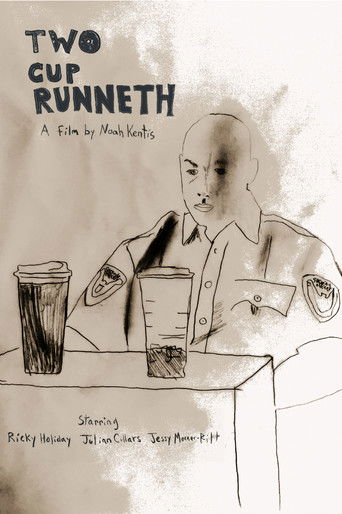 TWO
CUP
RUNNETH
A Film by Noah Kentis
Starring
Ricky Holiday Julian Collars Jessy